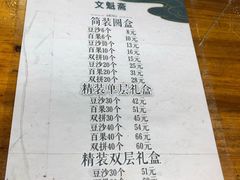 文魁斋
简装圆盒
豆沙6个 8元
百果6个 10元
豆沙10个 13元
百果10个 16元
双拼10个 15元
豆沙20个 25元
百果20个 31元
双拼20个 28元
精装单层礼盒
豆沙30个 42元
百果30个 51元
豆沙40个 54元
百果40个 66元
双拼40个 60元
精装双层礼盒
豆沙30个 51元
百果30个 60元